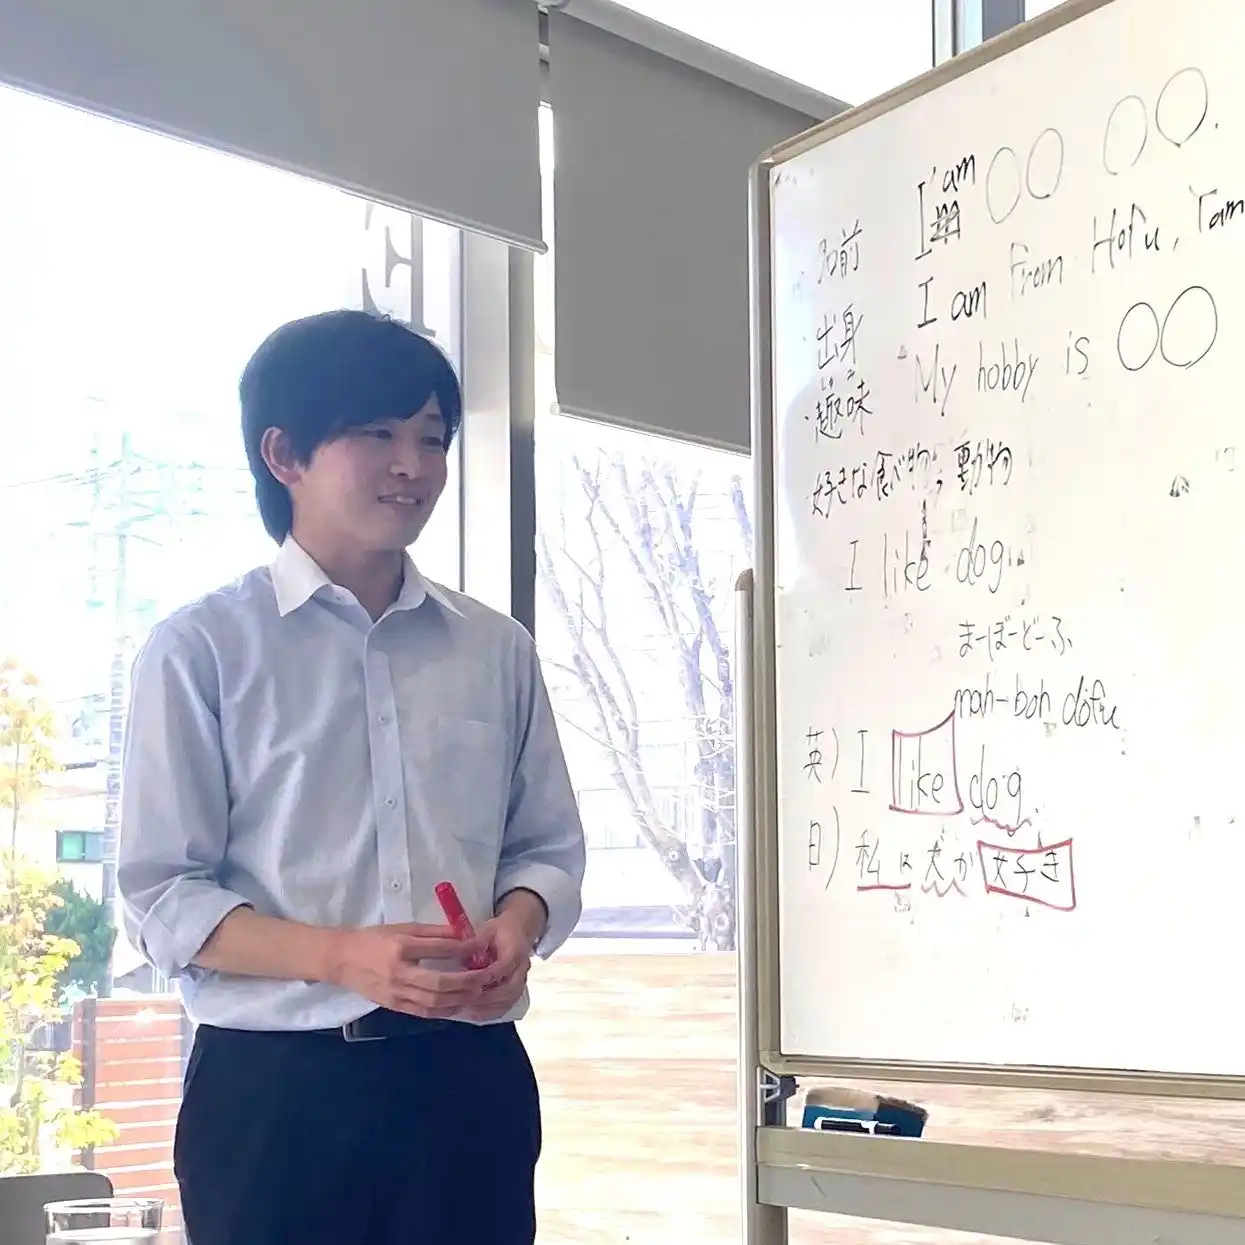 I'am 〇〇 〇〇.
名前
I am from Hofu, Yam
出身
My hobby is 〇〇
趣味
好きな食べ物, 動物
I like dog.
まーぼーどーふ
mah-boh dofu
英) I like dog.
日) 私は犬が好き